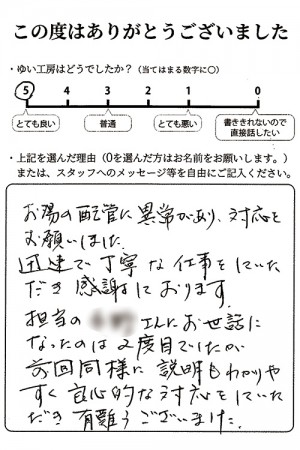 この度はありがとうございました
・ゆい工房はどうでしたか？（当てはまる数字に○）
5 4 3 2 1 0
とても良い 普通 とても悪い 書ききれないので直接話したい
・上記を選んだ理由（0を選んだ方はお名前をお願いします。）
または、スタッフへのメッセージ等を自由にご記入ください。
お湯の配管に異常があり、対応を
お願いしました
迅速で丁寧な仕事をしていた
だき感謝しております
担当の さんにお世話に
なったのは2度目でしたが
前回同様に説明もわかりや
すく良心的な対応をしていた
だき有難うございました